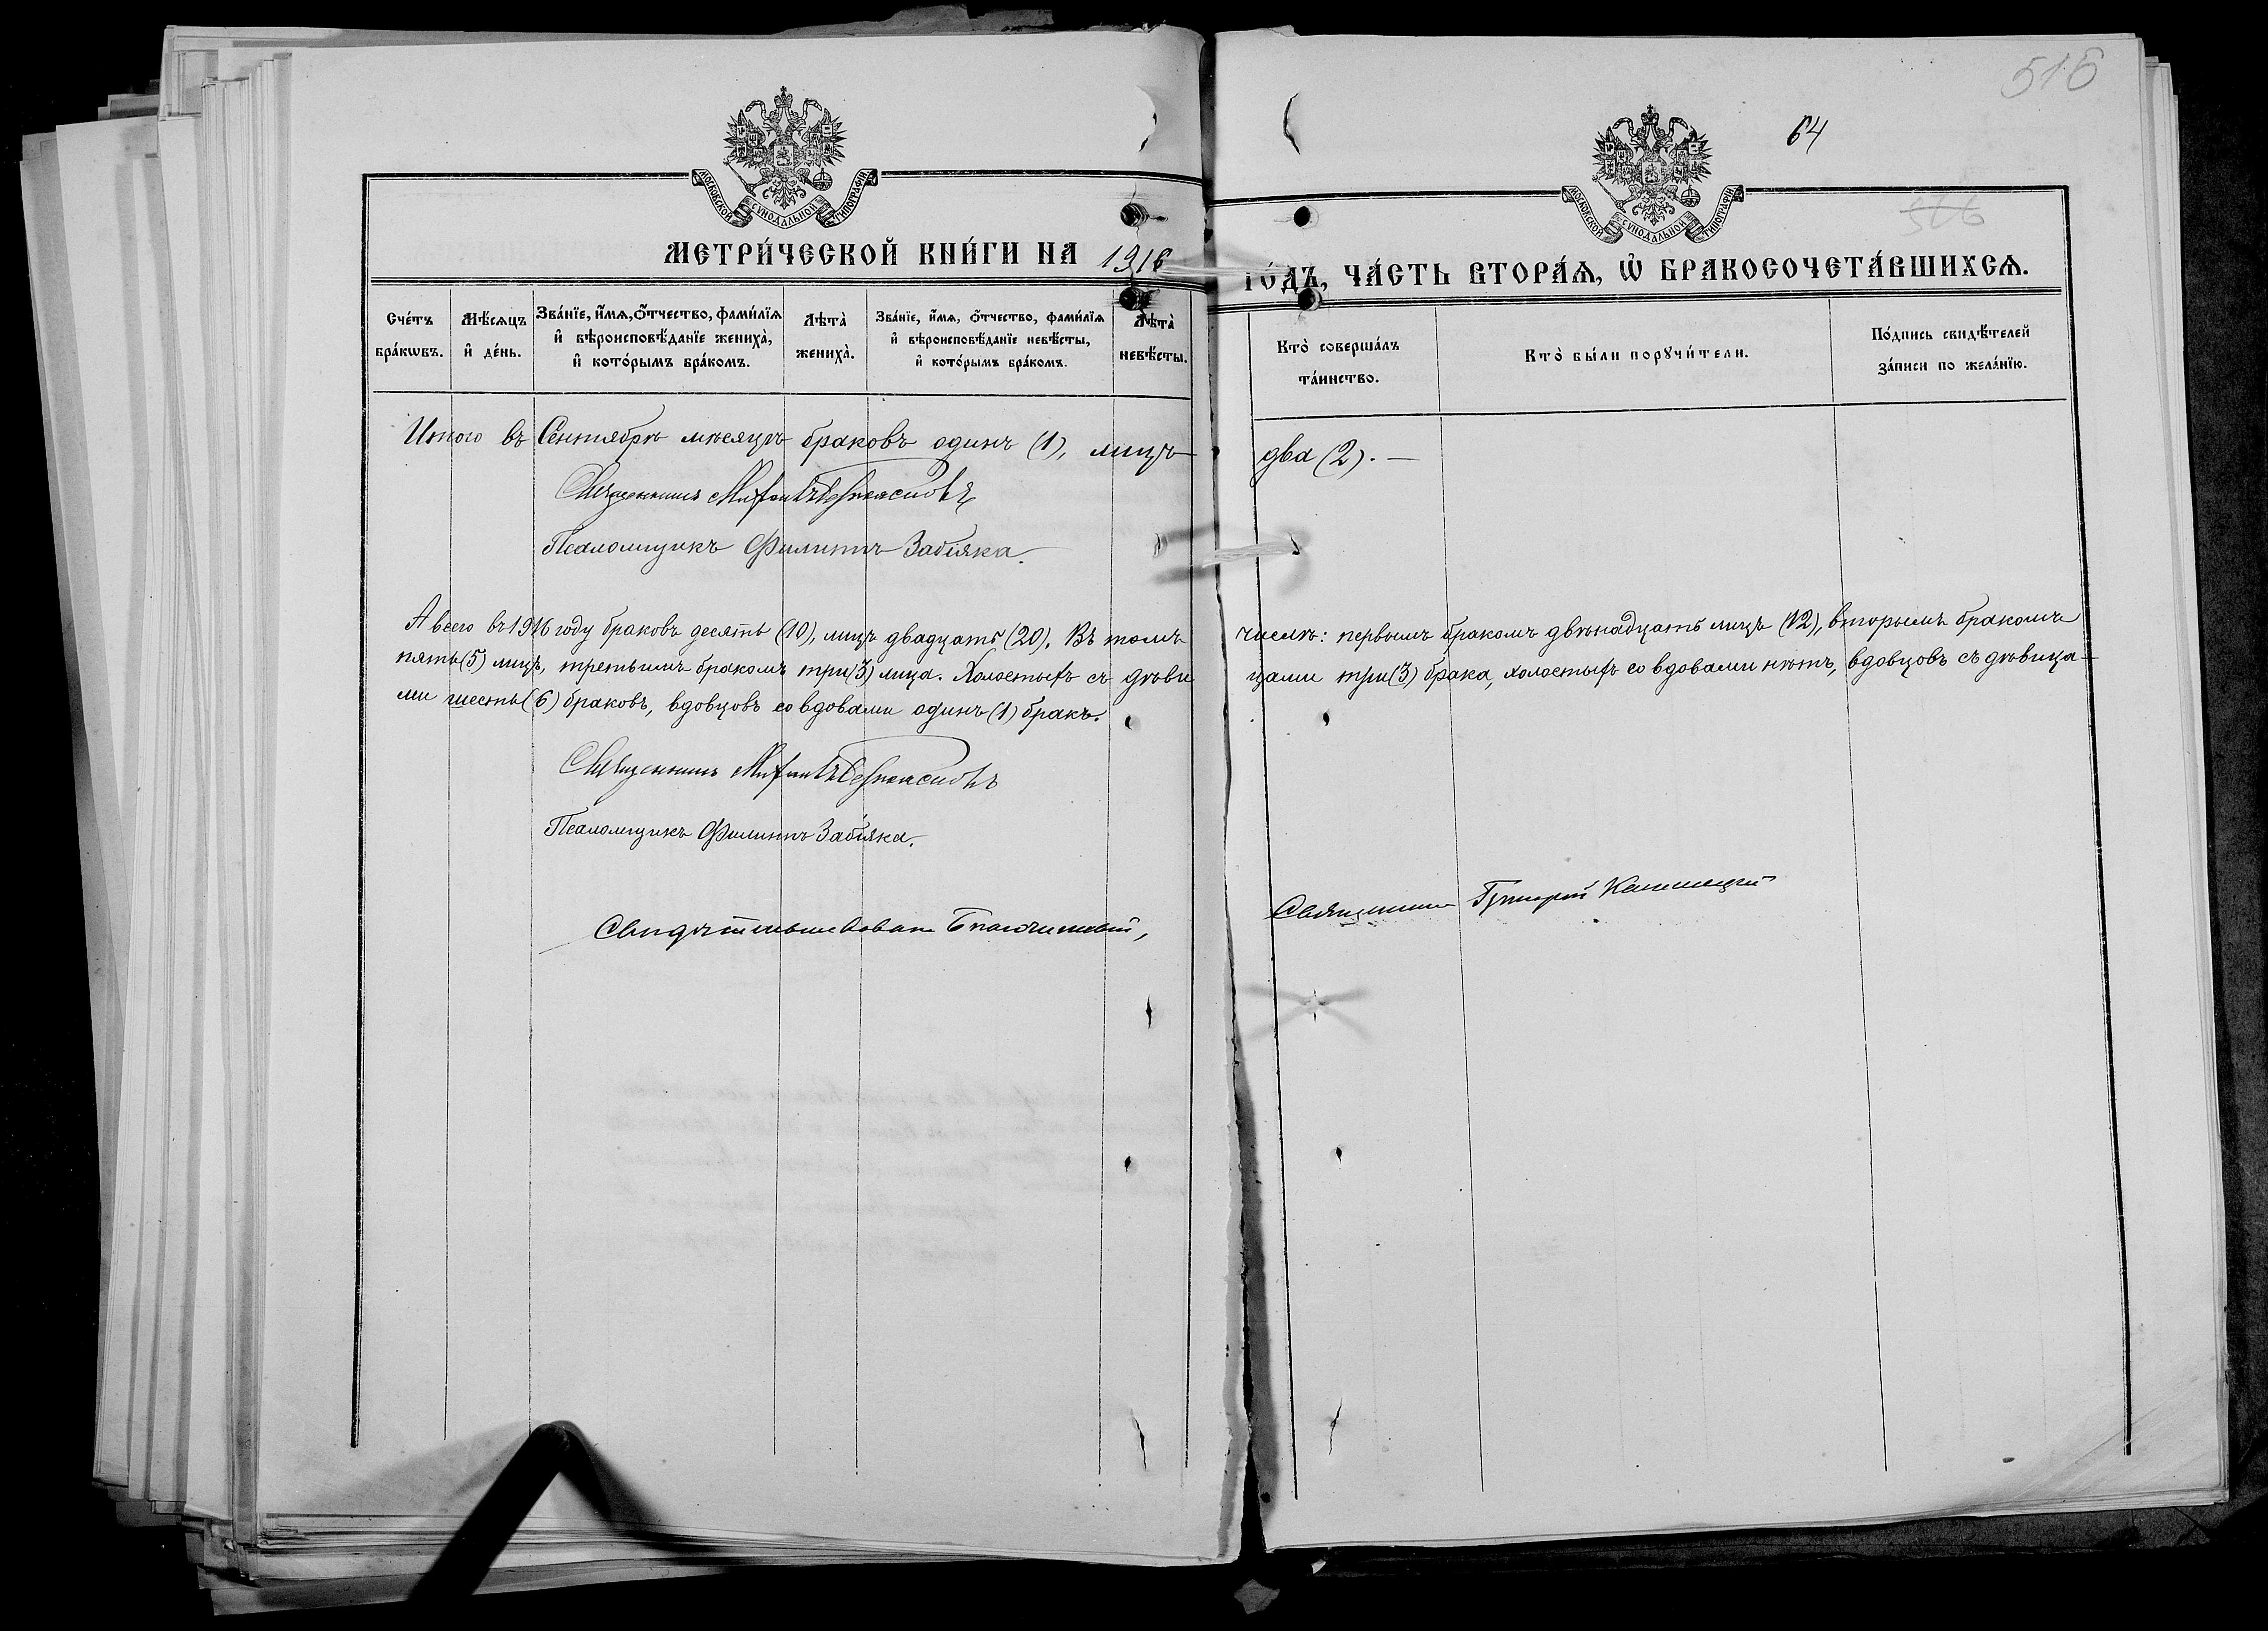 516
64
516
МОСКОВСКОЙ СѴНОДАЛЬНОЙ ТИПОГРАФІИ
МОСКОВСКОЙ СѴНОДАЛЬНОЙ ТИПОГРАФІИ
МЕТРИ́ЧЕСКОЙ КНИ́ГИ НА 1916 ГО́ДЪ, ЧА́СТЬ ВТОРА́Ѧ, Ѽ БРАКОСОЧЕТА́ВШИХСѦ.
Сче́тъ бра́кѡвъ.
Мѣ́сѧцъ и҆ де́нь.
Зва́нїе, и҆́мѧ, ѻ҆́тчество, фамі́лїѧ и҆ вѣроисповѣ́данїе жениха̀, и҆ кото́рымъ бра́комъ.
Лѣта̀ жениха̀.
Зва́нїе, и҆́мѧ, ѻ҆́тчество, фамі́лїѧ и҆ вѣроисповѣ́данїе невѣ́сты, и҆ кото́рымъ бра́комъ.
Лѣта̀ невѣ́сты.
Кто̀ соверша́лъ та́инство.
Кто̀ бы́ли порꙋчи́тели.
По́дпись свидѣ́телей за́писи по жела́нїю.
Итого въ Сентябрѣ мѣсяцѣ браковъ одинъ (1), лицъ два (2).—
Священникъ
Псаломщикъ Филиппъ Забіяка.
А всего въ 1916 году браковъ десять (10), лицъ двадцать (20). Въ томъ числѣ: первымъ бракомъ двѣнадцать лицъ (12), вторымъ бракомъ
пять (5) лицъ, третьимъ бракомъ три (3) лица. Холостыхъ съ дѣвицами три (3) брака, холостыхъ со вдовами нѣтъ, вдовцовъ съ дѣвица-
ми шесть (6) браковъ, вдовцовъ со вдовами одинъ (1) бракъ.
Священникъ
Псаломщикъ Филиппъ Забіяка.
Свидѣтельствовалъ Благочинный, Священникъ Григорій